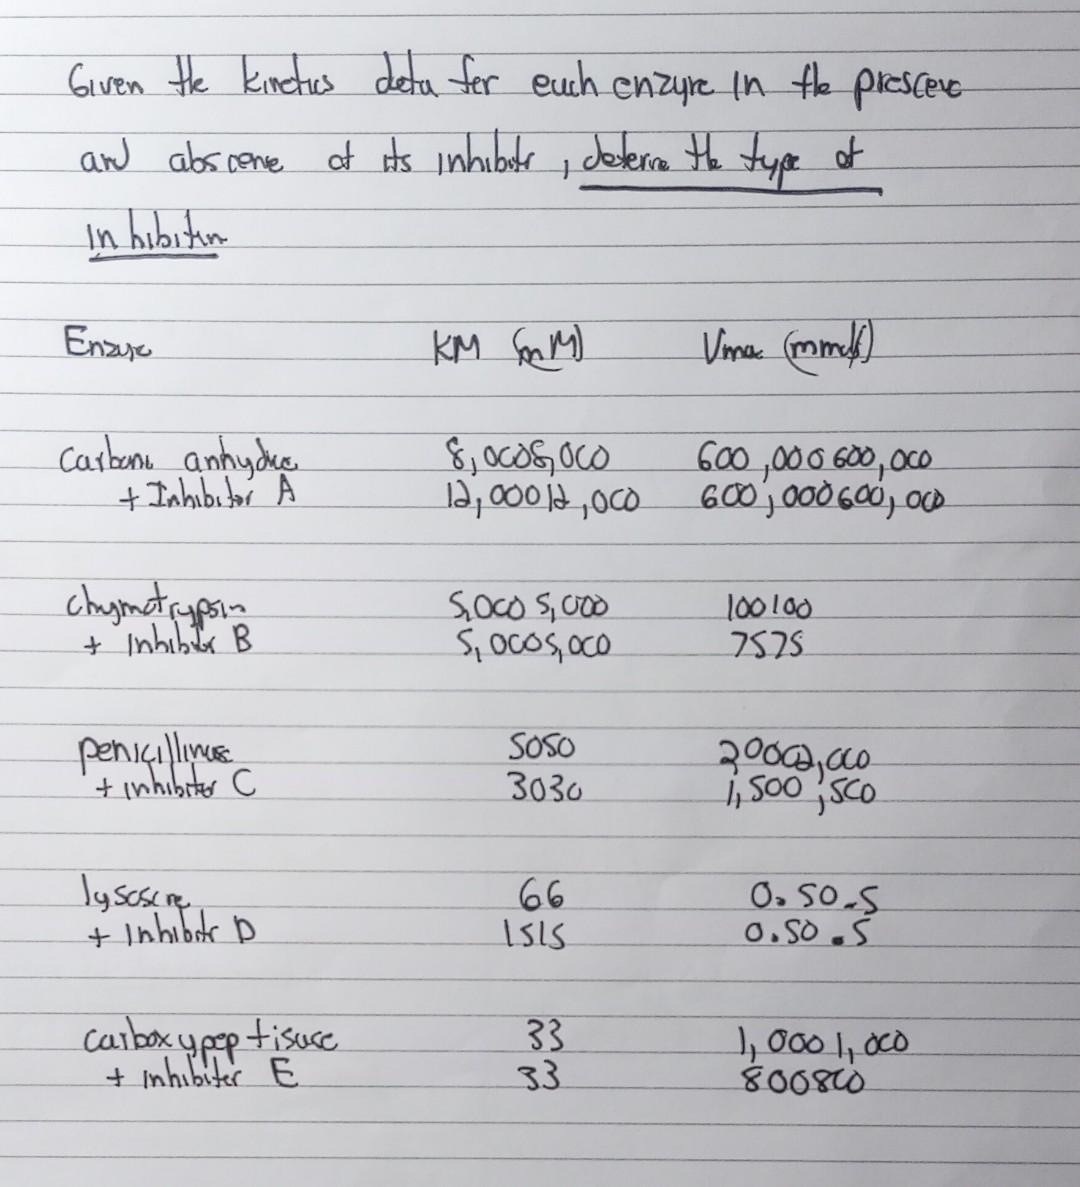 Given the kinetics data for each enzyme in the presence
and abscene of its inhibitor, determine the type of
inhibition
Enzyme KM (mM) Vmax (mmol/s)
Carbonic anhydrase 8,0008,000 600,000600,000
+ Inhibitor A 12,00012,000 600,000600,000
Chymotrypsin 5,0005,000 100100
+ Inhibitor B 5,0005,000 7575
penicillinase 5050 20002,000
+ inhibitor C 3030 1,500,500
lysosome 66 0.50.5
+ Inhibitor D 1515 0.50.5
carboxypeptisase 33 1,0001,000
+ inhibiter E 33 800800